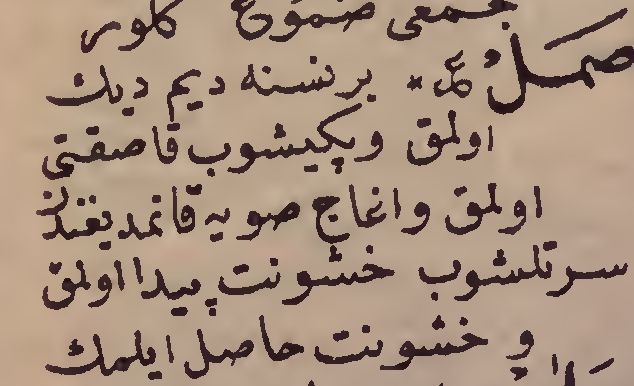 جمعى صموغ كلور
صَمَلُ ع * برنسنه ديم ديك
اولمق وپكيشوب قاصقتى
اولمق واغاج صويه قانمديغندن
سرتلشوب خشونت پيدا اولمق
و خشونت حاصل ايلمك